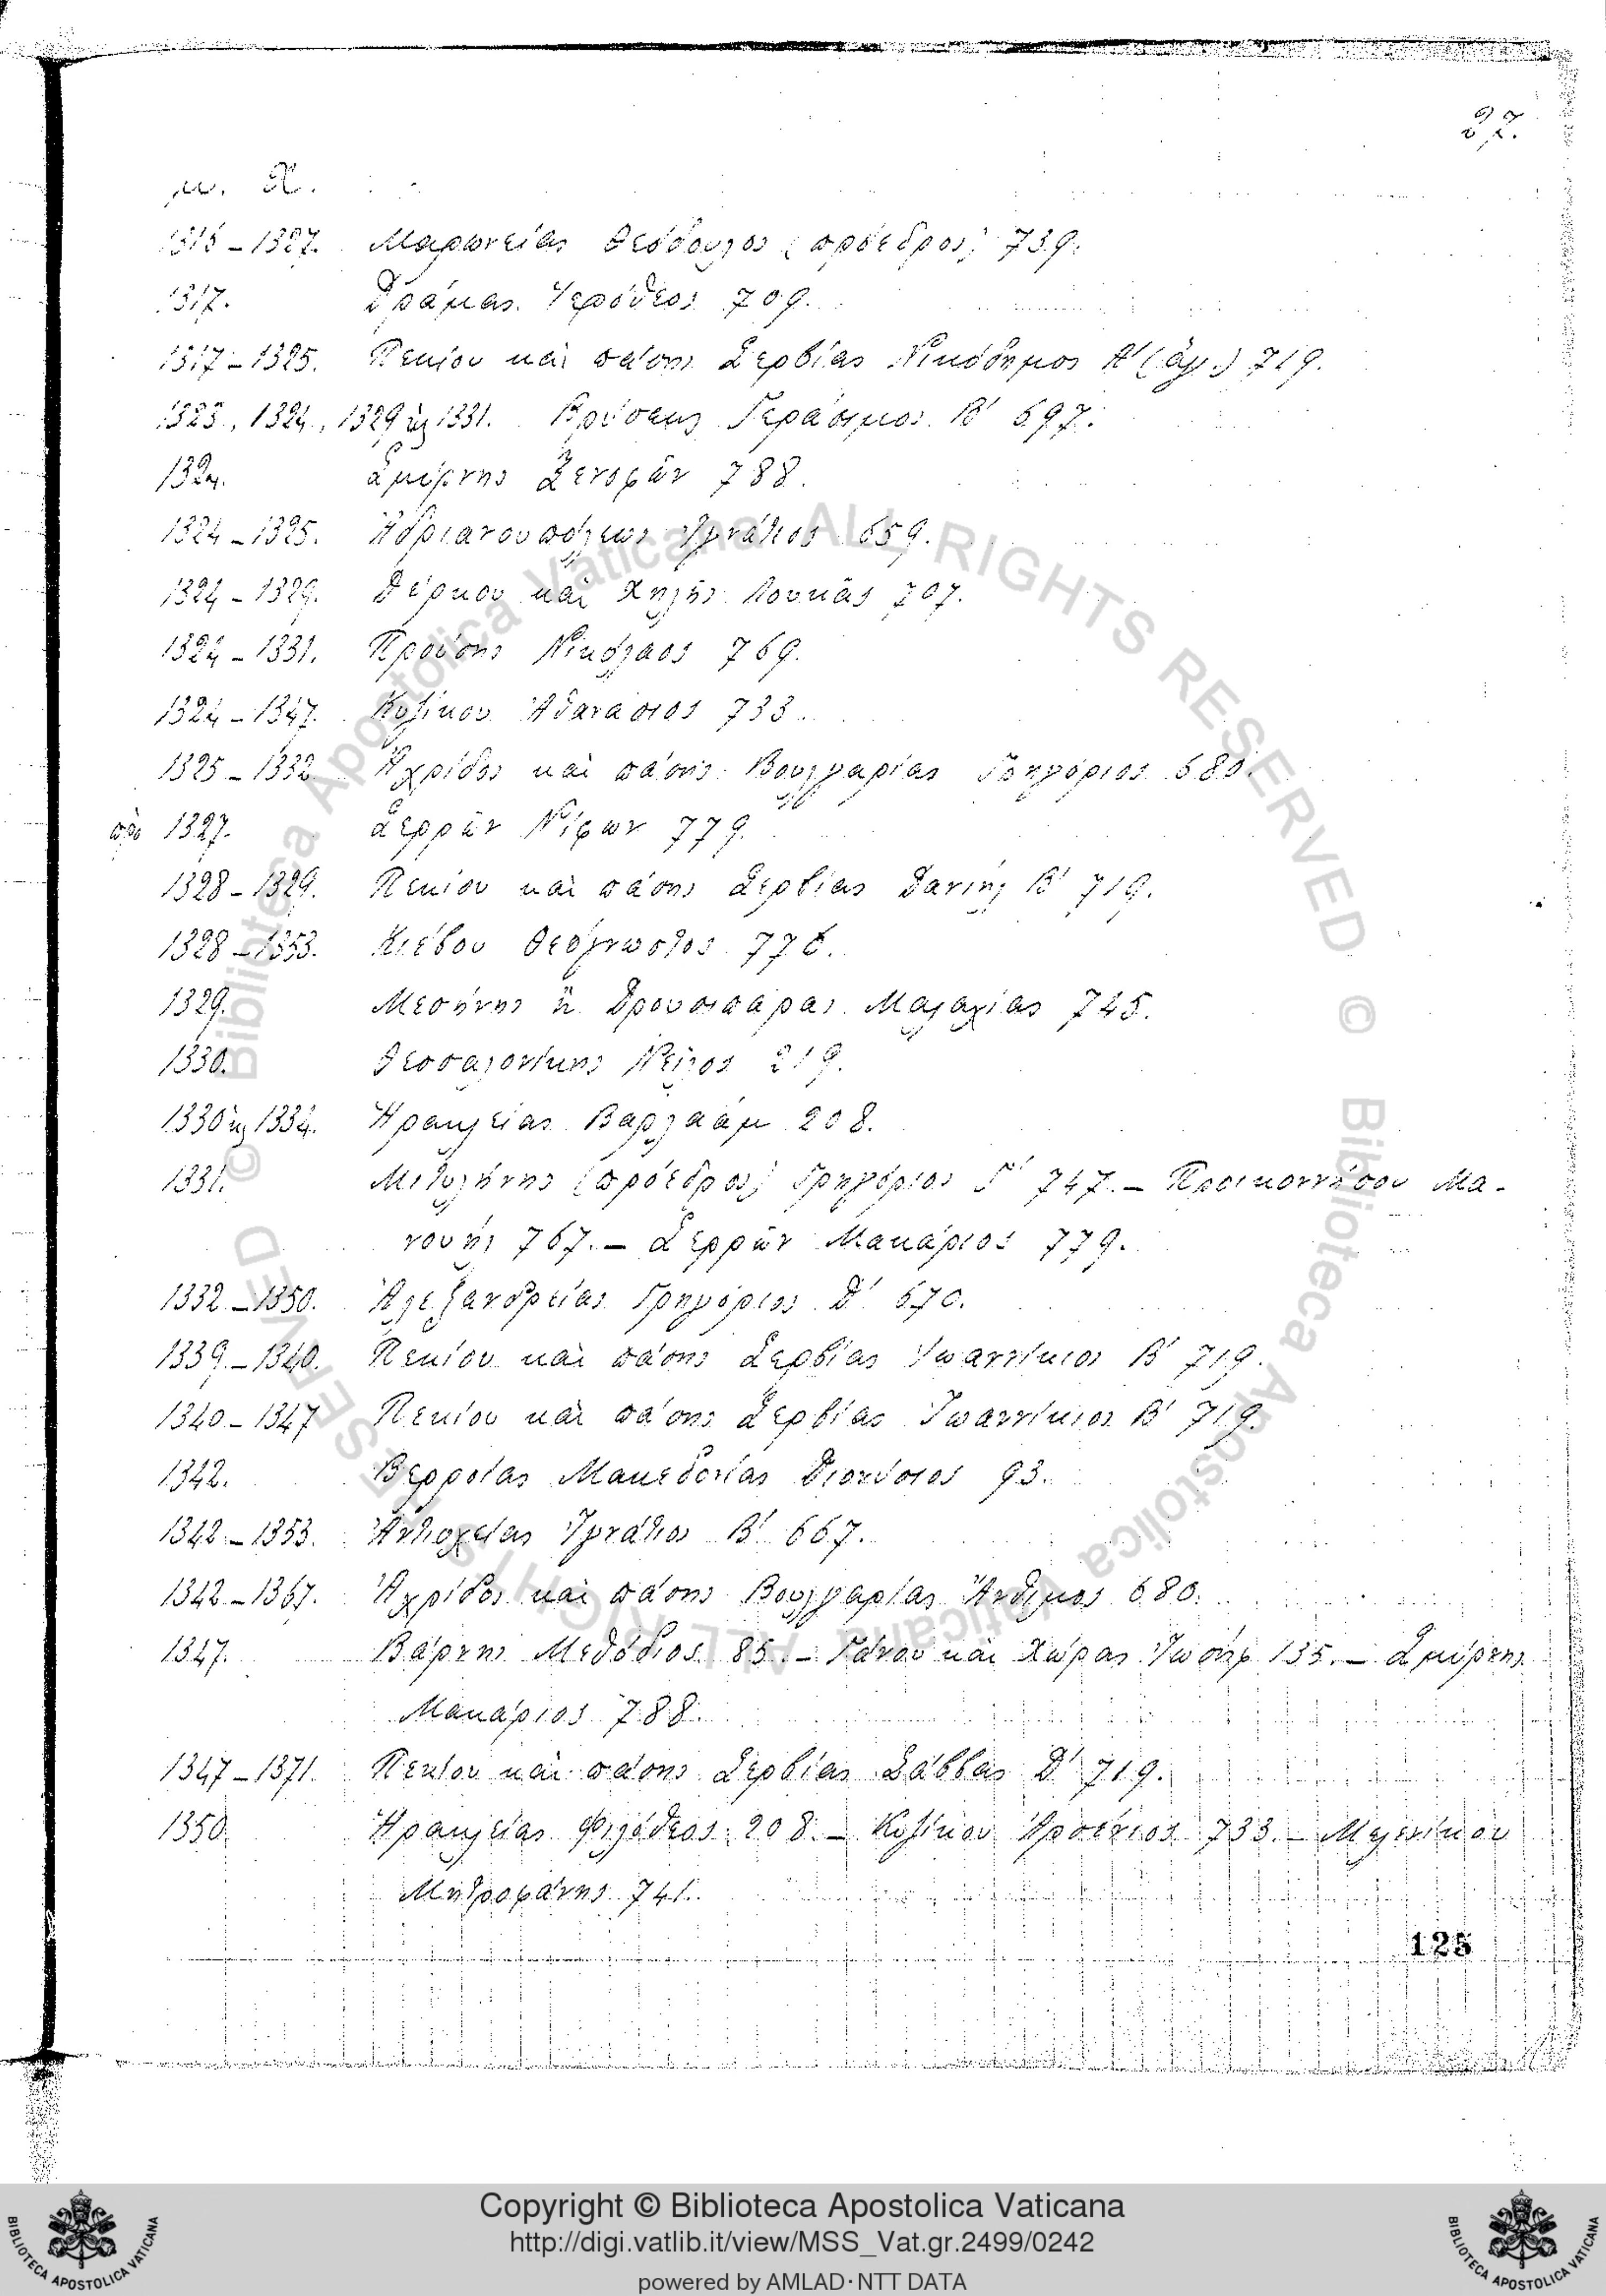 27.
μ. Χ.
1315 – 1327. Μαρωνείας Θεόδουλος (πρόεδρος) 739.
1317. Δράμας Ἱερόθεος 709.
1317 – 1325. Πεκίου καὶ πάσης Σερβίας Νικόδημος Α' (ἅγ.) 719.
1323, 1324, 1329 ϗ 1331. Βρύσεως Γεράσιμος Β' 697.
1324. Σμύρνης Ξενοφῶν 788.
1324 – 1325. Ἀδριανουπόλεως Ἰγνάτιος 659.
1324 – 1329. Δέρκου καὶ Χηλῆς Λουκᾶς 707.
1324 – 1331. Προύσης Νικόλαος 769.
1324 – 1347. Κυζίκου Ἀθανάσιος 733.
1325 – 1332 Ἀχρίδος καὶ πάσης Βουλγαρίας Γρηγόριος 680.
πρὸ 1327. Σερρῶν Νίφων 779.
1328 – 1329. Πεκίου καὶ πάσης Σερβίας Δανιὴλ Β' 719.
1328 – 1353. Κιέβου Θεόγνωστος 776.
1329. Μεσήνης ἢ Δρουσιπάρας Μαλαχίας 745.
1330. Θεσσαλονίκης Νεῖλος 219.
1330 ϗ 1334. Ἡρακλείας Βαρλαὰμ 208.
1331. Μιτυλήνης (πρόεδρος) Γρηγόριος Γ' 747. – Προικοννήσου Μα-
νουὴλ 767. – Σερρῶν Μακάριος 779.
1332 – 1350. Ἀλεξανδρείας Γρηγόριος Δ' 670.
1339 – 1340. Πεκίου καὶ πάσης Σερβίας Ἰωαννίκιος Β' 719.
1340 – 1347 Πεκίου καὶ πάσης Σερβίας Ἰωαννίκιος Β' 719.
1342. Βερροίας Μακεδονίας Διονύσιος 93.
1342 – 1353. Ἀντιοχείας Ἰγνάτιος Β' 667.
1342 – 1367. Ἀχρίδος καὶ πάσης Βουλγαρίας Ἄνθιμος 680.
1347. Βάρνης Μεθόδιος 85. – Γάνου καὶ Χώρας Ἰωσὴφ 135. – Σμύρνης
Μακάριος 788.
1347 – 1371. Πεκίου καὶ πάσης Σερβίας Σάββας Δ' 719.
1350. Ἡρακλείας Φιλόθεος 208. – Κυζίκου Ἀρσένιος 733. – Μελενίκου
Μητροφάνης 741.
125
© Biblioteca Apostolica Vaticana ALL RIGHTS RESERVED © Biblioteca Apostolica Vaticana ALL RIGHTS RESERVED
Copyright © Biblioteca Apostolica Vaticana
http://digi.vatlib.it/view/MSS_Vat.gr.2499/0242
powered by AMLAD·NTT DATA
BIBLIOTECA APOSTOLICA VATICANA
BIBLIOTECA APOSTOLICA VATICANA